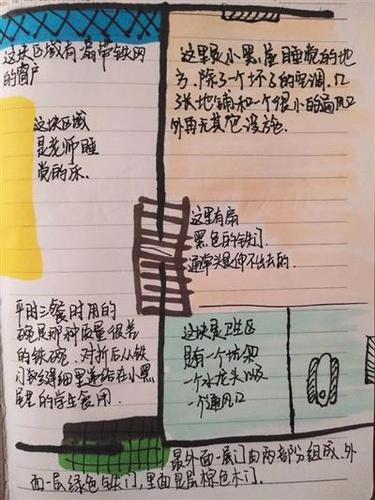 这块区域有扇带铁网
的窗户
这块区域
是老师睡
觉的床.
平时三餐时用的
碗是那种质量很差
的铁碗. 对折后从铁
门缝隙里递给在小黑
屋里的学生食用.
这里是小黑屋睡觉的地
方. 除了一个坏了的空调. 几
张地铺和一个很小的通风口
外再无其它设施.
这里有扇
黑色的铁门.
通常头是伸不出去的.
这块是卫生区
只有一个坑架
一个水龙头以及
一个通风口
最外面一层门由两部分组成. 外
面一层绿色铁门, 里面是层棕色木门.